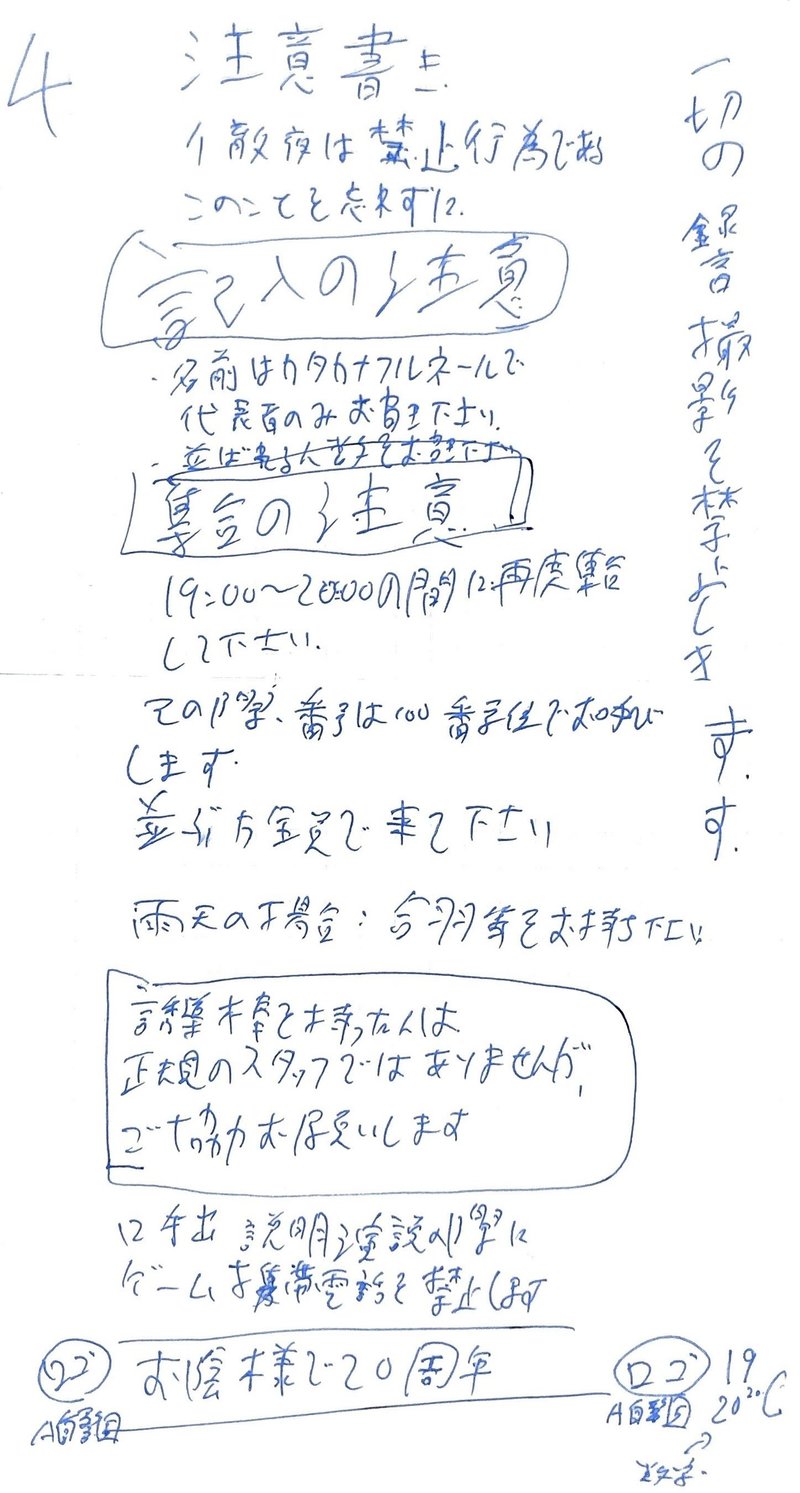 4
注意書き
徹夜は禁止行為である
このことを忘れずに.
記入の注意
・名前はカタカナフルネールで
代表者のみお書き下さい.
・並ばれる人数をお書き下さい
集合の注意
19:00〜20:00の間に再度集合
して下さい.
その際、番号は100番単位でお呼び
します.
並ぶ方全員で来て下さい
雨天の場合:合羽等をお持ち下さい
誘導棒を持った人は
正規のスタッフではありませんが、
ご協力お願いします
説明演説の際に
ゲーム携帯電話を禁止します
ロゴ
お陰様で20周年
ロゴ
19
20
数字.
一切の録音撮影を禁止します.
す.